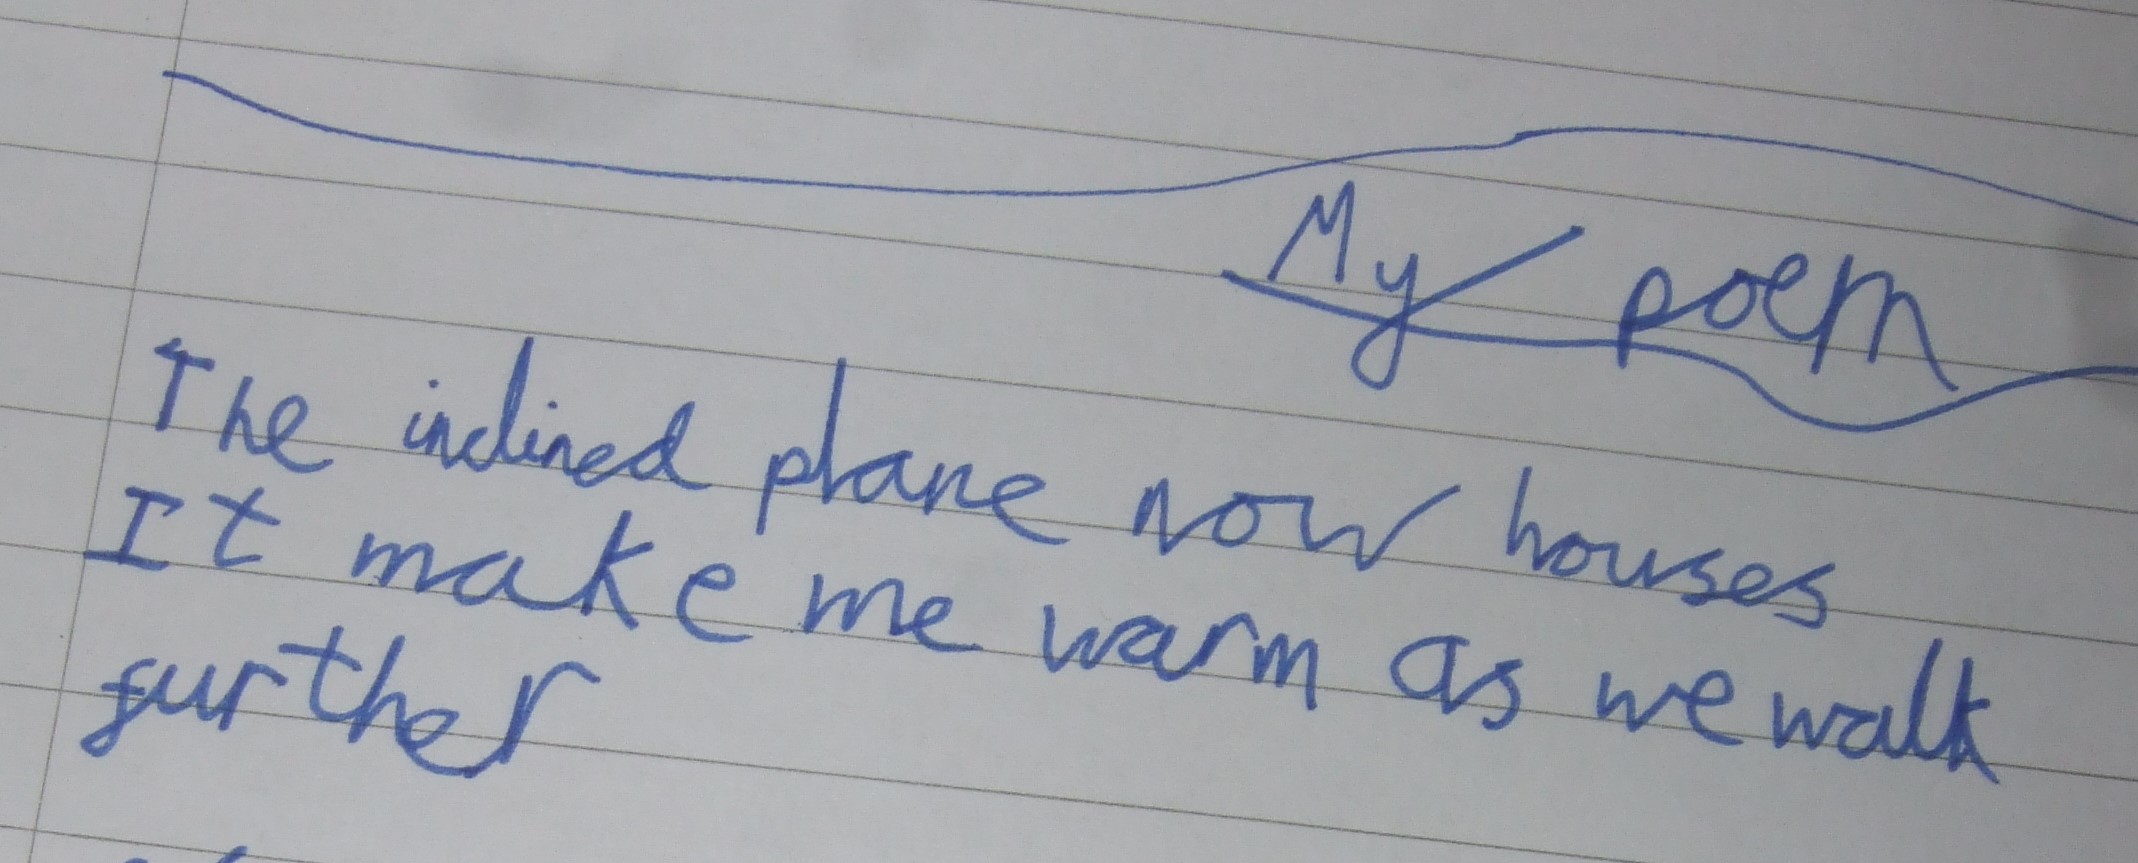 My poem
The inclined plane now houses
It make me warm as we walk
further